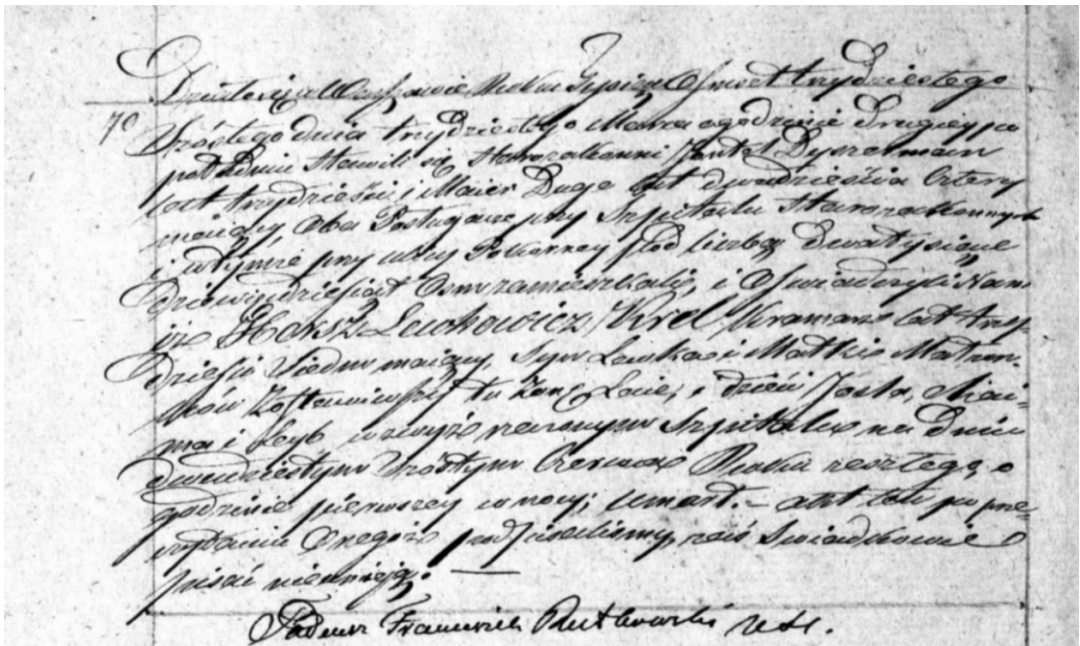 Działo się w Warszawie Roku Tysiąc Osmset trzydziestego
70
Szóstego dnia trzydziestego Marca o godzinie drugiey po
południu Stawili się Starozakonni
lat trzydzieści i Maier lat dwadzieścia Cztery
maiący, Oba Posługacze przy Szpitalu Starozakonnych
i w tymże przy ulicy Pokorney Pod liczbą dwatysiące
dziewięćdziesiąt Osm zamieszkali, i Oświadczyli Nam
iże Lewkowicz Krel Kramarz lat trzy-
dzieści Siedm maiący, Syn Lewka i Matki
tu Żonę i dzieci Joska,
ma i Leyb w zwyż rzeczonym Szpitalu na dniu
dwudziestym Szóstym Roku zeszłego, o
godzinie pierwszey w nocy, umarł. – akt ten po prze-
czytaniu Onegoż podpisaliśmy, zaś Swiadkowie
pisać nieumieją.
Franciszek Rutkowski